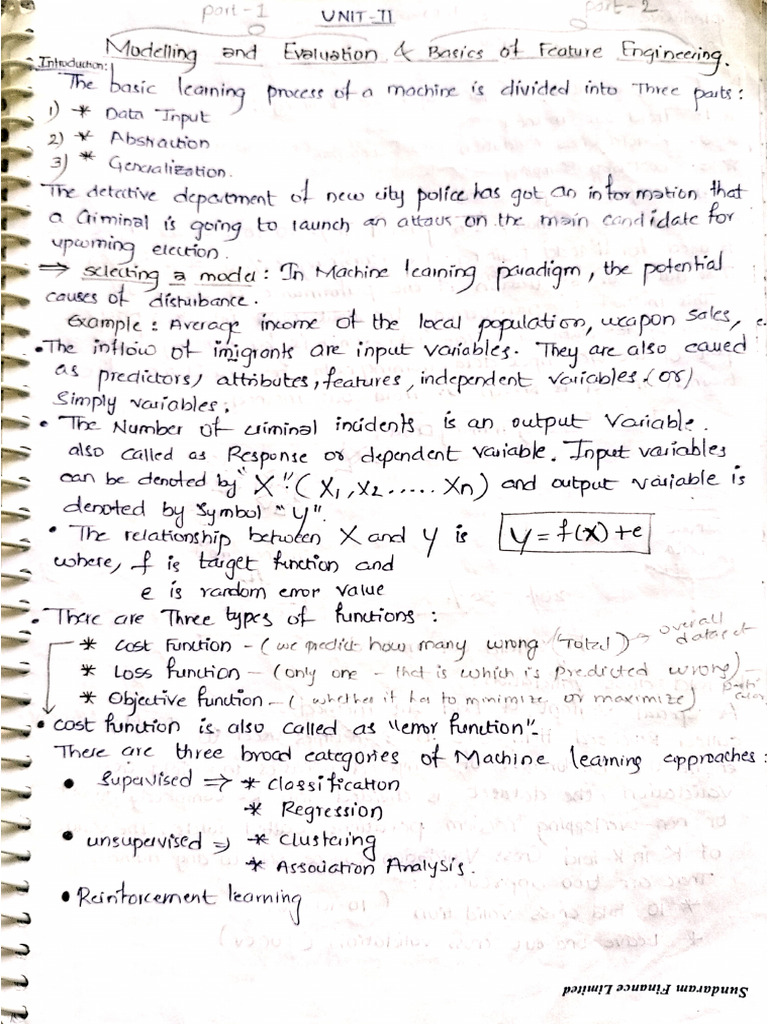 part-1 UNIT-II part-2
Modelling and Evaluation & Basics of Feature Engineering.
Introduction:
The basic learning process of a machine is divided into Three parts:
1) * Data Input
2) * Abstraction
3) * Generalization.
The detective department of new city police has got an information that
a Criminal is going to launch an attack on the main candidate for
upcoming election.
⇒ selecting a model: In Machine learning paradigm, the potential
causes of disturbance.
Example: Average income of the local population, weapon sales, e.
• The inflow of imigrants are input variables. They are also called
as predictors, attributes, features, independent variables (or)
Simply variables.
• The Number of criminal incidents is an output variable.
also called as Response or dependent variable. Input variables
can be denoted by "X" (X1, X2 ..... Xn) and output variable is
denoted by symbol "Y".
• The relationship between X and Y is Y = f(x) + e
where, f is target function and
e is random error value
• There are Three types of functions:
* Cost Function - (we predict how many wrong (Total) → overall dataset
* Loss function - (only one - that is which is predicted wrong) -
* Objective function - (whether it has to minimize or maximize)
• cost function is also called as "error function".
There are three broad categories of Machine learning approaches:
• Supervised ⇒ * Classification
* Regression
• unsupervised ⇒ * Clustering
* Association Analysis.
• Reinforcement learning
Sundaram Finance Limited